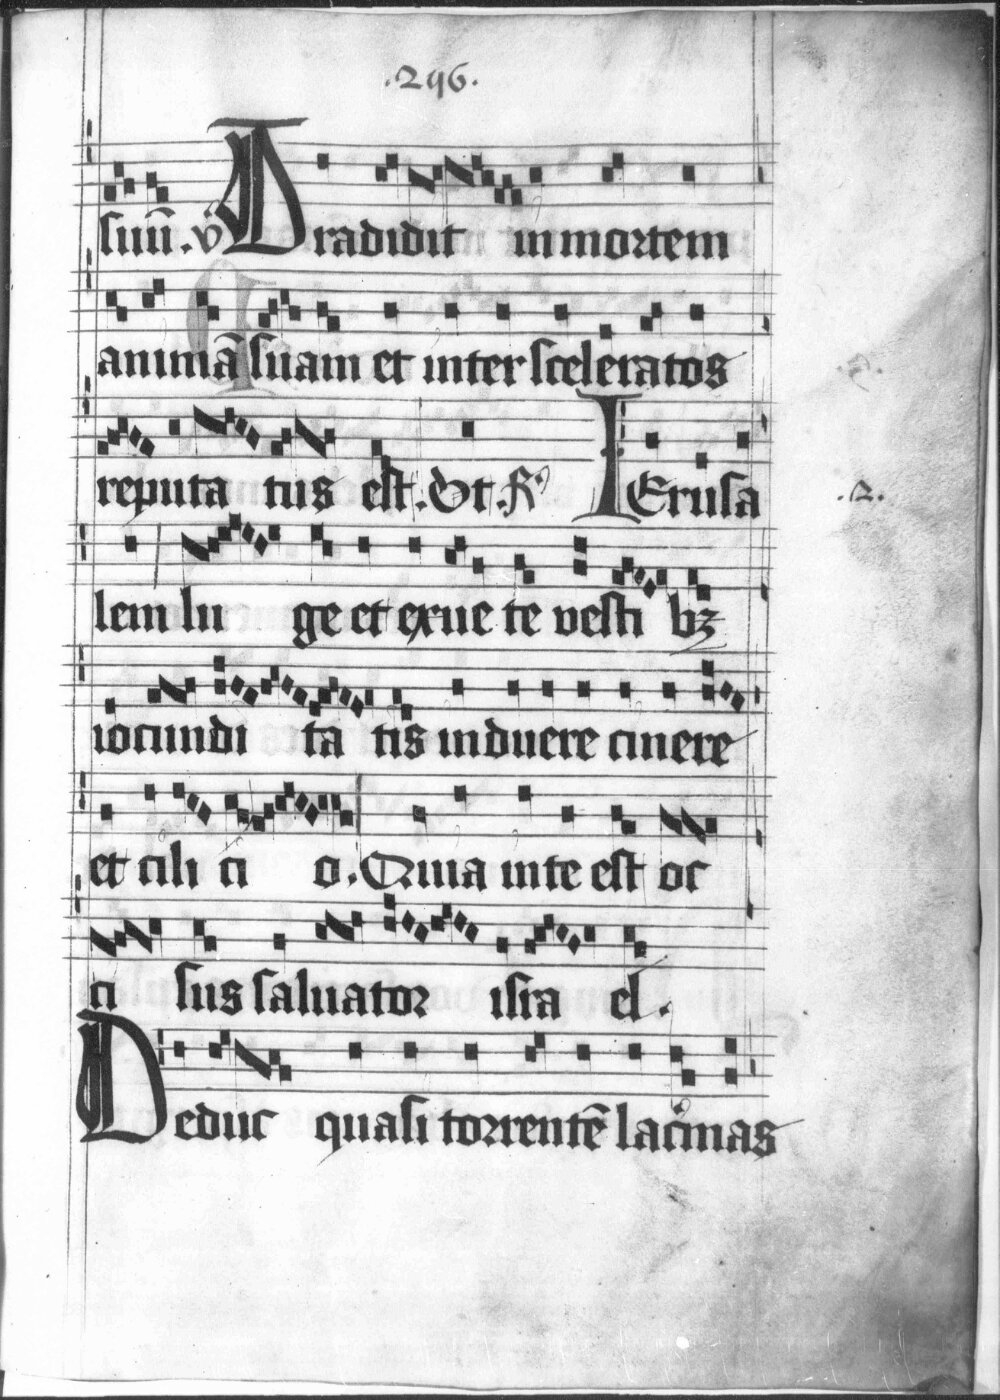 .296.
suū. v̄ Dradidit in mortem
animā suam et inter sceleratos
reputa tus est. Vt. R̸
IErusa
.2.
lem lu ge et exue te vesti bꝫ
iocundi ta tis induere cinere
et cili ci o. Quia in te est oc
ci sus saluator isra el.
Deduc quasi torrentē lacͥmas